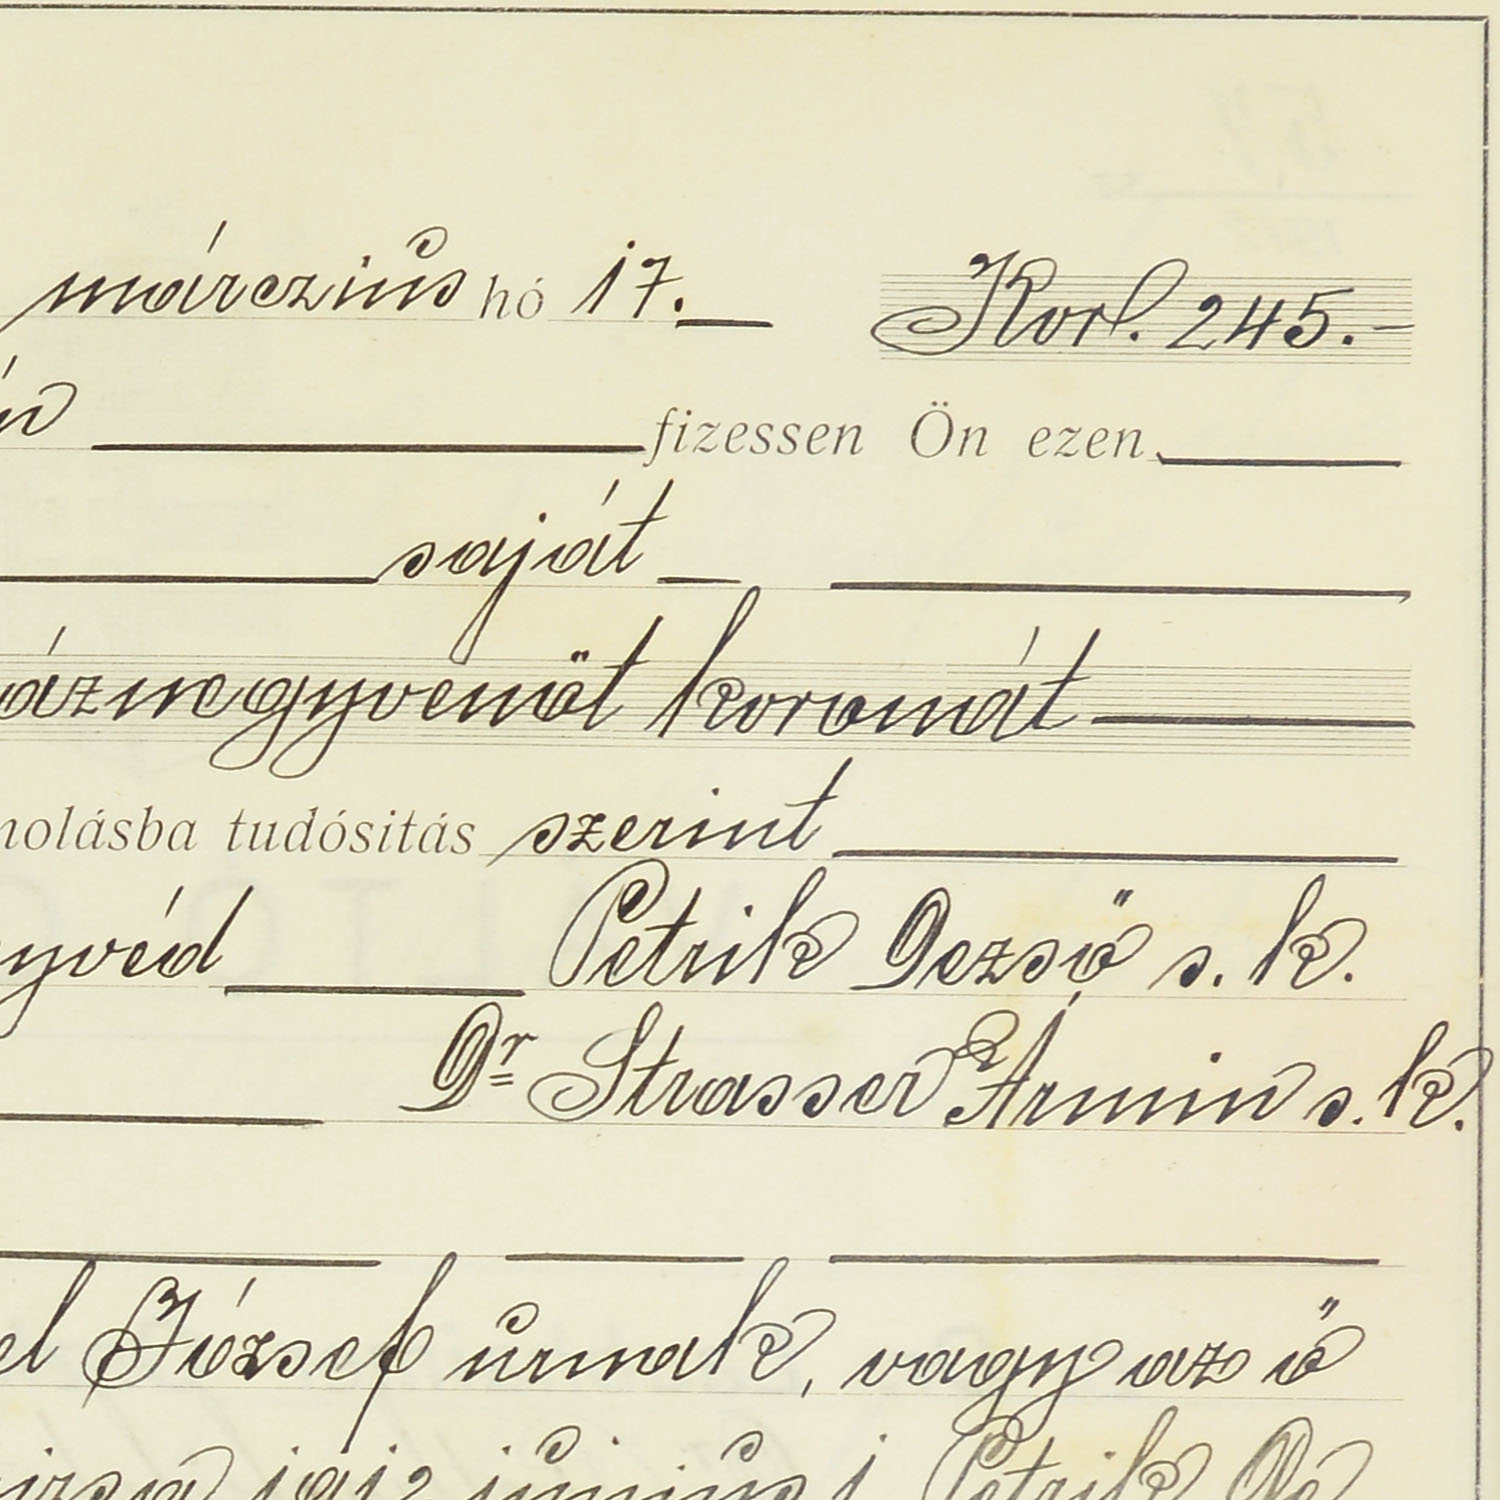 márczius hó 17. Kor. 245.-
fizessen Ön ezen
saját
áznegyvenöt koronát
nolásba tudósitás szerint
yvéd Petrik Dezső s. k.
Dr Strasser Ármin s. k.
el József úrnak, vagy az ő
1912 június 1 Petrik De